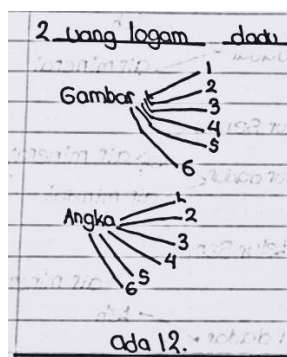 2 uang logam dadu
1
2
Gambar 3
4
5
6
1
Angka 2
3
4
5
6
ada 12.